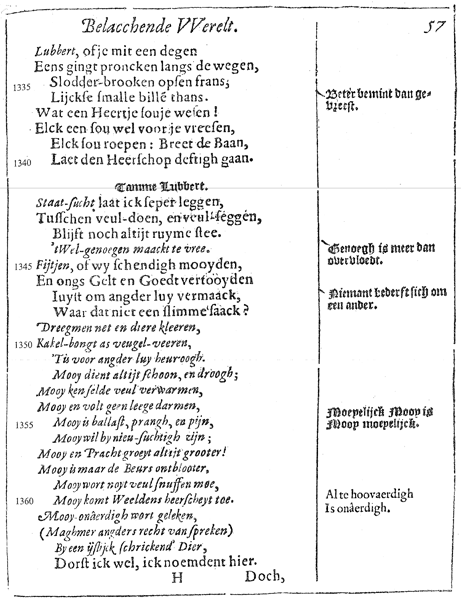 Belacchende VVerelt. 57
Lubbert, ofje mit een degen
Eens gingt proncken langs de wegen,
1335 Slodder-brooken opsen frans;
Lijckse smalle billē thans.
Beter bemint dan ge-
vreest.
Wat een Heertje souje wesen!
Elck een sou wel voor je vreesen,
Elck sou roepen: Breet de Baan,
1340 Laet den Heerschop deftigh gaan.
Tamme Lubbert.
Staat-sucht laat ick seper leggen,
Tusschen veul-doen, en veul-seggen,
Blijft noch altijt ruyme stee.
'tWel-genoegen maackt te vree.
Genoegh is meer dan
overvloedt.
1345 Fijtjen, of wy schendigh mooyden,
En ongs Gelt en Goedt vertooyden
Iuyst om angder luy vermaack,
Waar dat niet een slimme saack?
Niemant bederft sich om
een ander.
Dreegmen net en diere kleeren,
1350 Kakel-bongt as veugel-veeren,
'Tis voor angder luy heuroogh.
Mooy dient altijt schoon, en droogh;
Mooy ken selde veul verwarmen,
Mooy en volt geen leege darmen,
1355 Mooy is ballast, prangh, en pijn,
Mooy wil by nieu-suchtigh zijn;
Moeyelijck Mooy is
Mooy moeyelijck.
Mooy en Pracht groeyt altijt grooter!
Mooy is maar de Beurs ontblooter,
Mooy wort noyt veul snuffen moe,
1360 Mooy komt Weeldens heerscheyt toe.
Al te hoovaerdigh
Is onaerdigh.
Mooy-onaerdigh wort geleken,
(Maghmer angders recht van spreken)
By een ijslijck schrickend' Dier,
Dorst ick wel, ick noemdent hier.
H Doch,